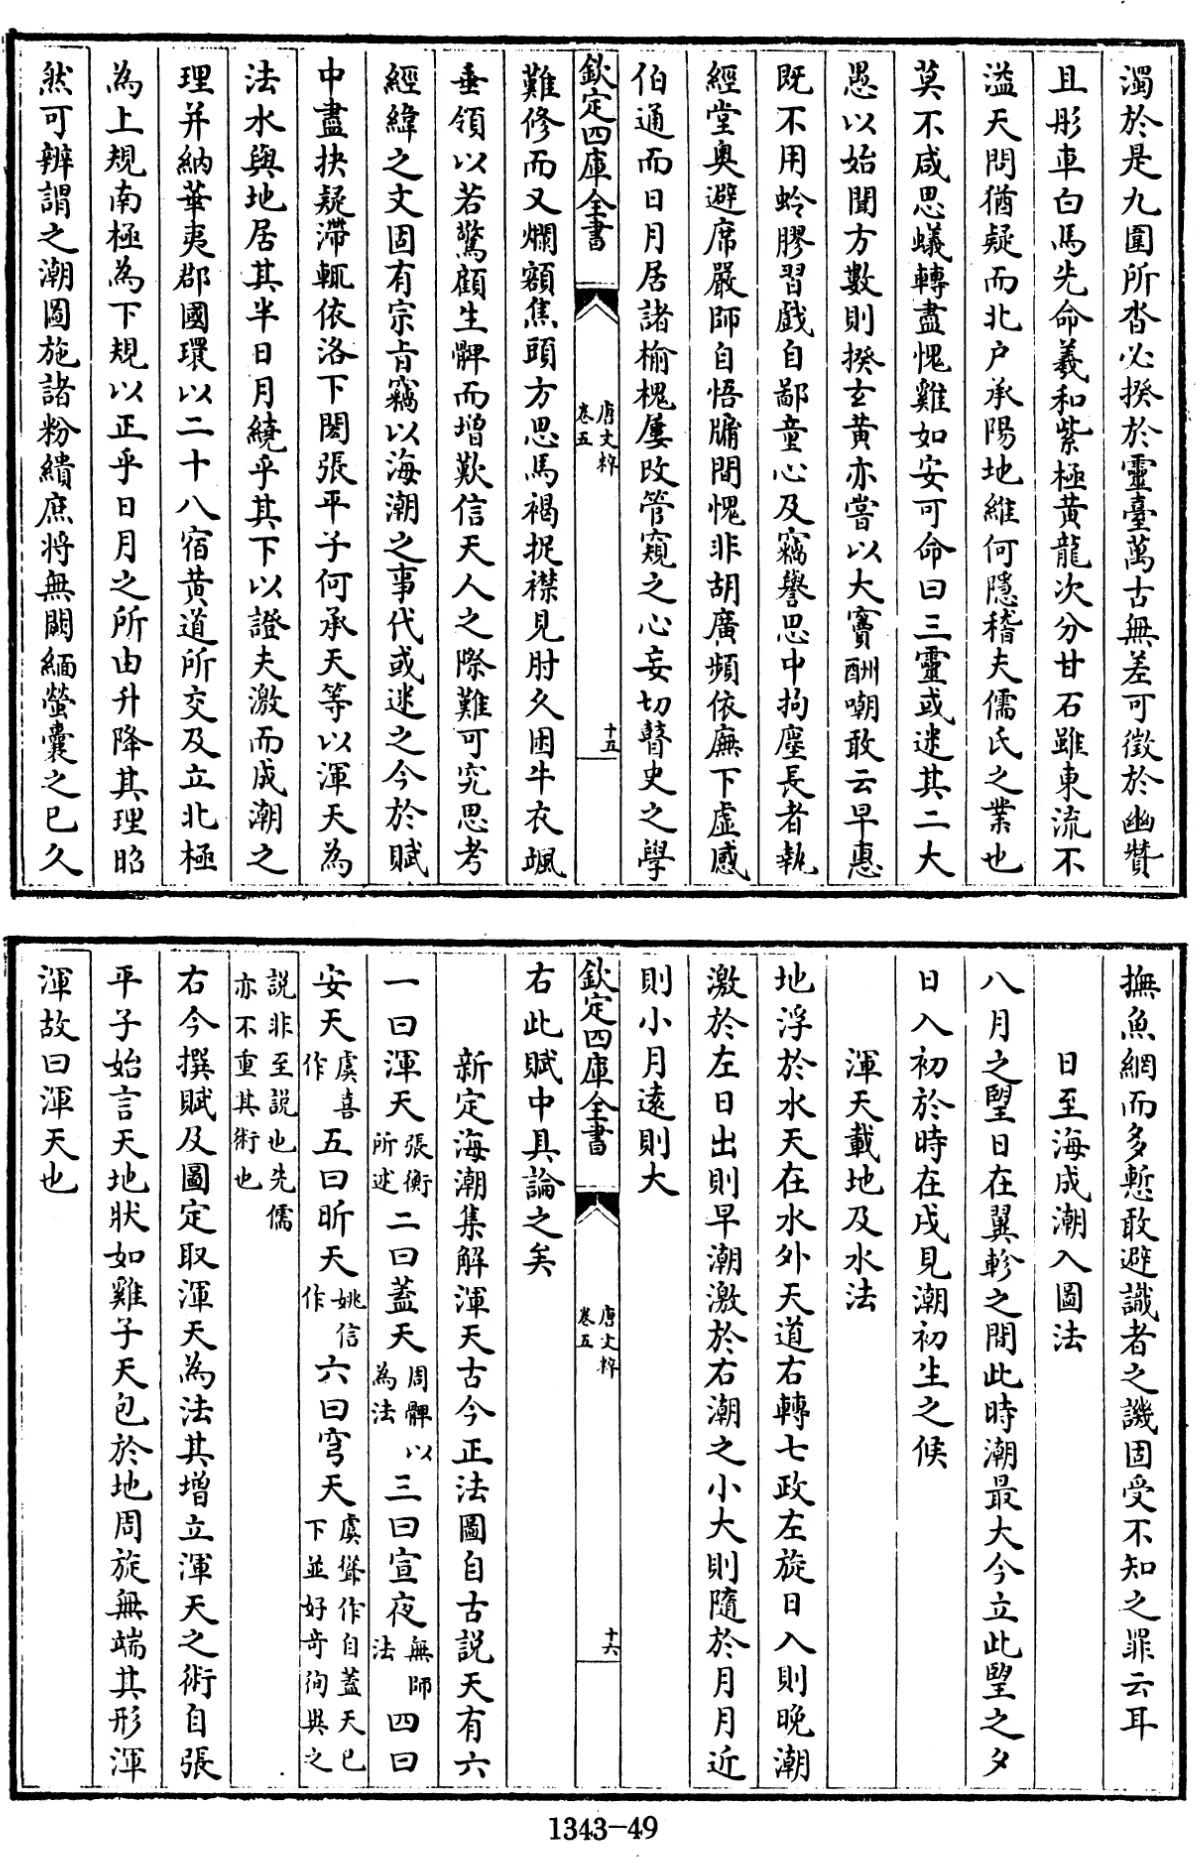 濁於是九圍所沓必揆於靈臺萬古無差可徵於幽贊
且彤車白馬先命羲和紫極黄龍次分甘石雖東流不
溢天問猶疑而北户承陽地維何隱稽夫儒氏之業也
莫不咸思蟻轉盡愧雞如安可命曰三靈或迷其二大
愚以始聞方數則揆玄黄亦嘗以大寶酬嘲敢云早惠
既不用蛉膠習戲自鄙童心及竊譽思中拘塵長者執
經堂奥避席嚴師自悟牖間愧非胡廣頻依廡下虚感
伯通而日月居諸榆槐屢改管窺之心妄切瞽史之學
欽定四庫全書
唐文粹
卷五
十五
難修而又爛額焦頭方思馬褐捉襟見肘久困牛衣颯
垂領以若驚顧生髀而增歎信天人之際難可究思考
經緯之文固有宗㫖竊以海潮之事代或迷之今於賦
中盡抉疑滯輒依洛下閎張平子何承天等以渾天為
法水與地居其半日月繞乎其下以證夫激而成潮之
理并納華夷郡國環以二十八宿黄道所交及立北極
為上規南極為下規以正乎日月之所由升降其理昭
然可辨謂之潮圖施諸粉繢庶将無闕緬螢囊之已久
撫魚網而多慙敢避識者之譏固受不知之罪云耳
日至海成潮入圖法
八月之朢日在翼軫之間此時潮最大今立此朢之夕
日入初於時在戌見潮初生之候
渾天載地及水法
地浮於水天在水外天道右轉七政左旋日入則晚潮
激於左日出則早潮激於右潮之小大則隨於月月近
則小月遠則大
欽定四庫全書
唐文粹
卷五
十六
右此賦中具論之矣
新定海潮集解渾天古今正法圖自古説天有六
一曰渾天張衡所述二曰蓋天周髀以為法三曰宣夜無師法四曰
安天虞喜作五曰昕天姚信作六曰穹天虞聳作自蓋天已下並好奇徇異之
説非至説也先儒亦不重其術也
右今撰賦及圖定取渾天為法其增立渾天之術自張
平子始言天地狀如雞子天包於地周旋無端其形渾
渾故曰渾天也
1343-49